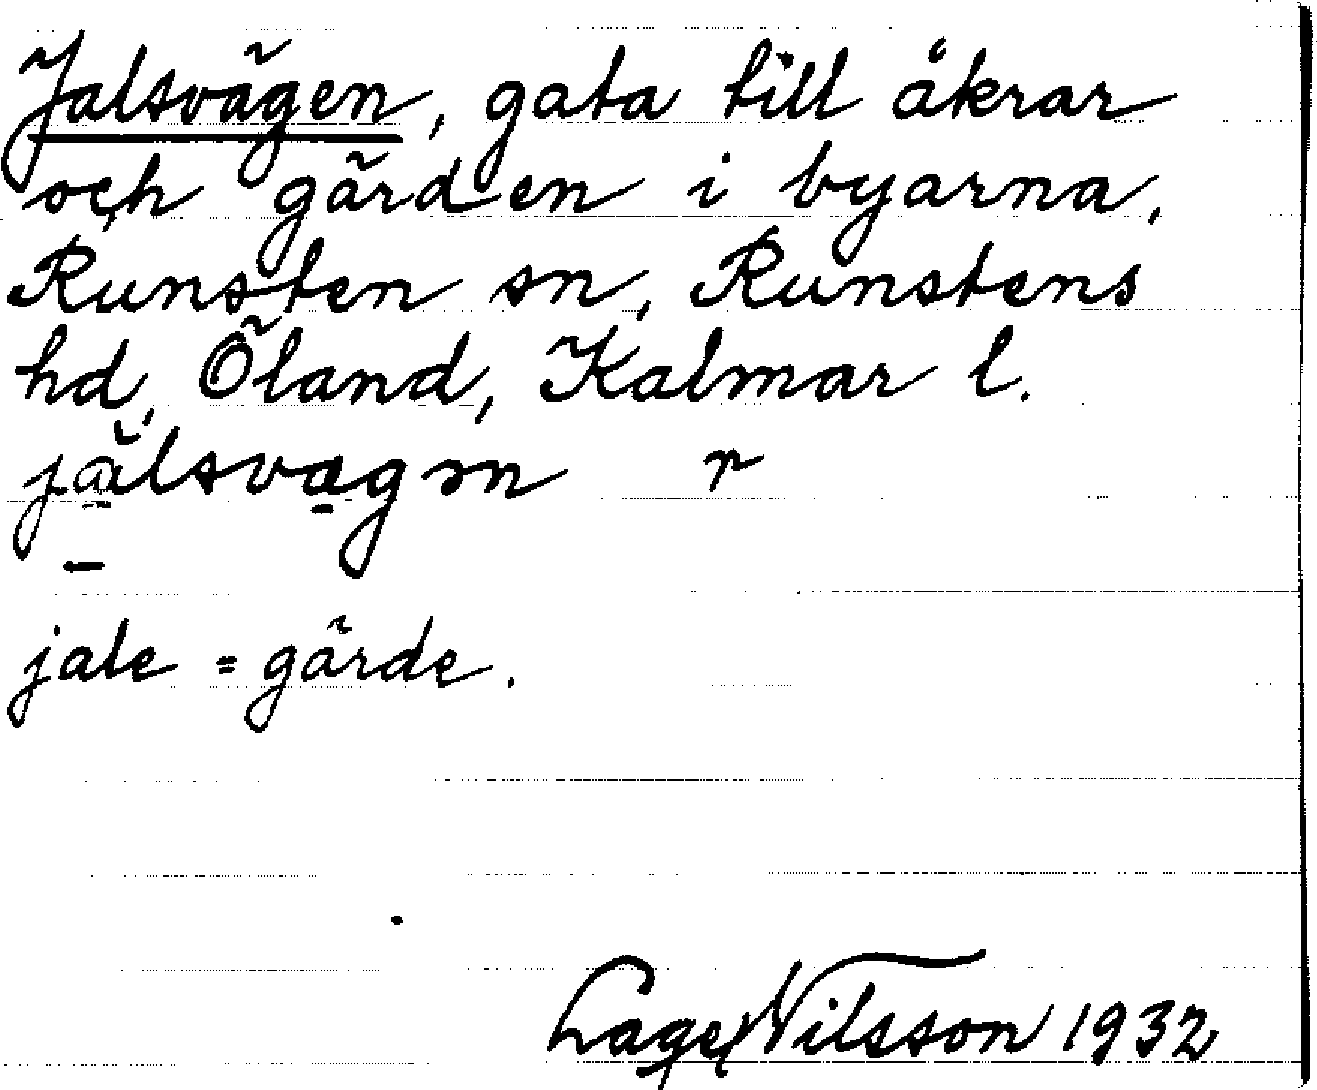 Jalsvägen, gata till åkrar
och gärden i byarna,
Runsten sn, Runstens
hd, Öland, Kalmar l.
jalsvagən r
jale = gärde.
Lage Nilsson 1932